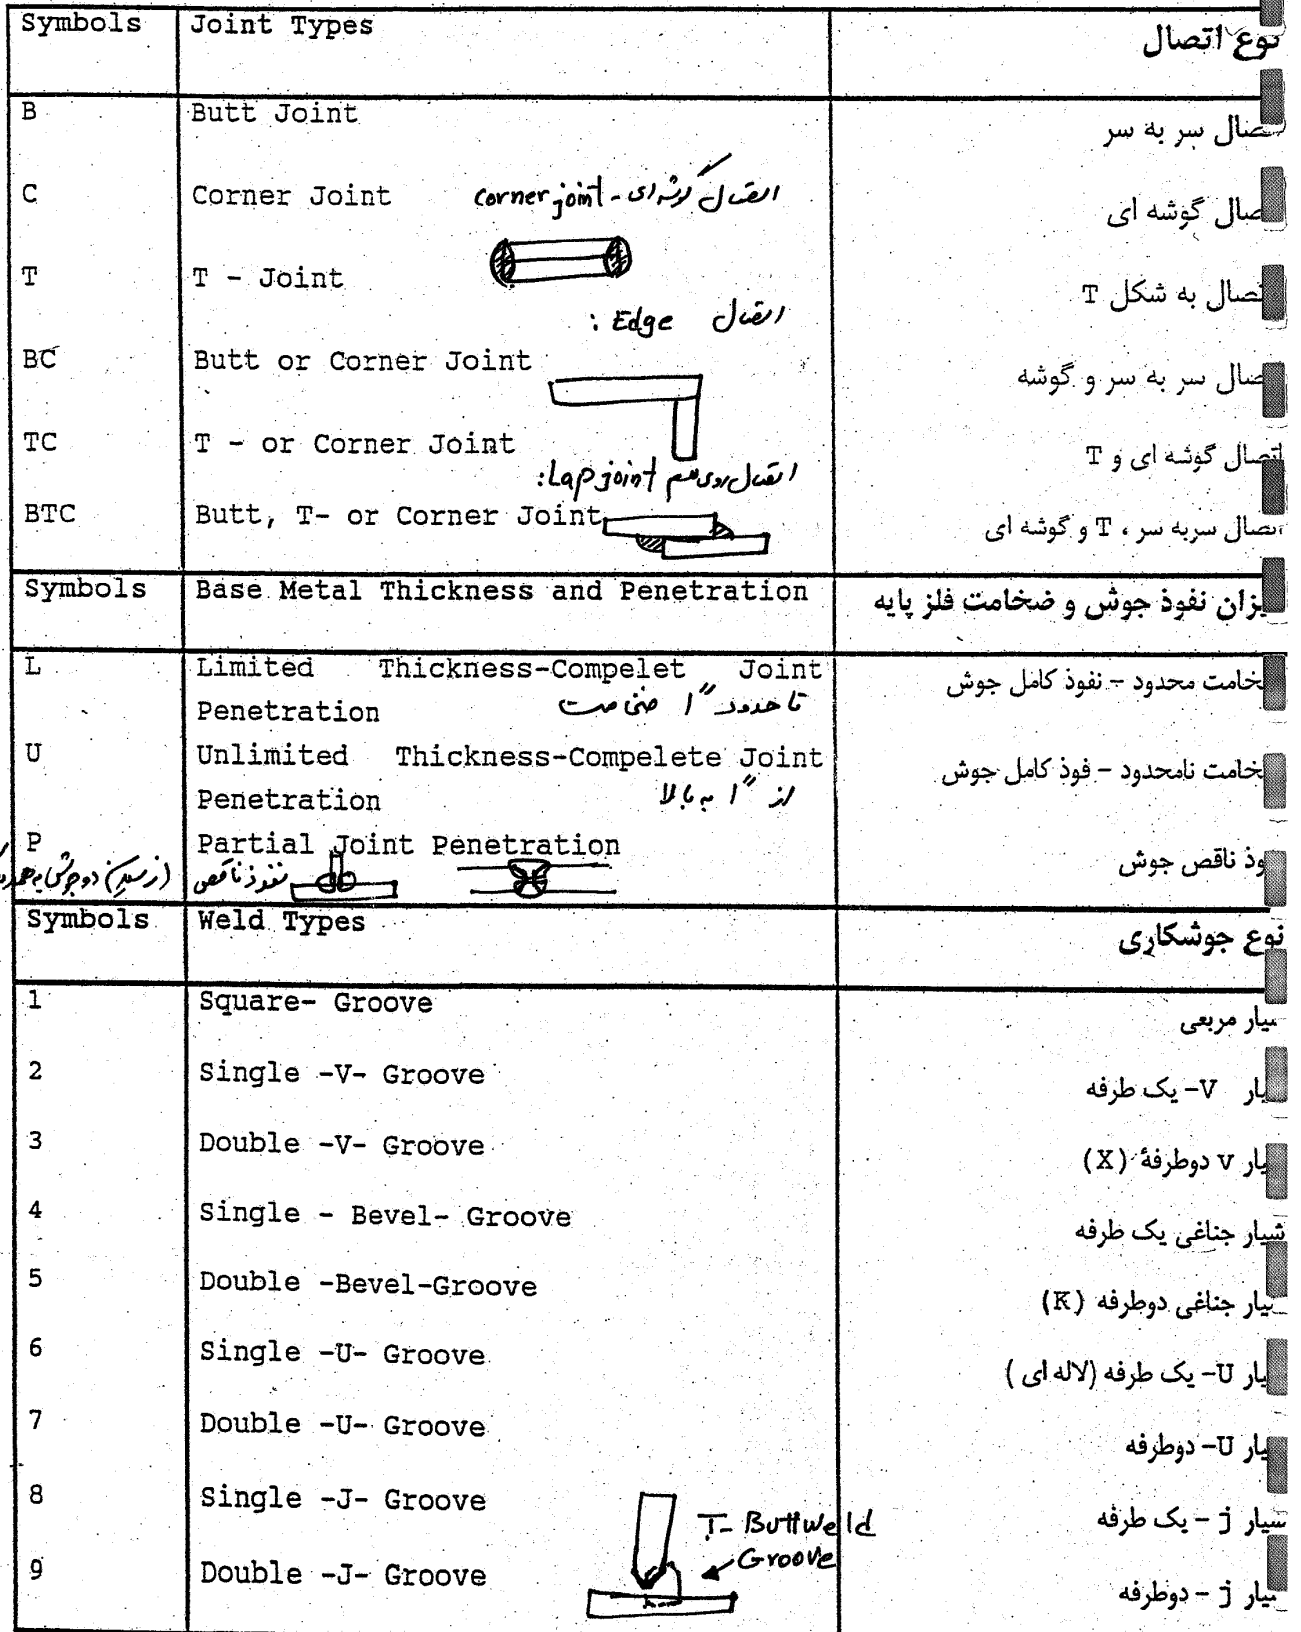 Symbols Joint Types نوع اتصال
B Butt Joint اتصال سر به سر
C Corner Joint corner joint - اتصال گوشه ای اتصال گوشه ای
T T - Joint اتصال به شکل T
اتصال Edge :
BC Butt or Corner Joint اتصال سر به سر و گوشه
TC T - or Corner Joint اتصال گوشه ای و T
اتصال روی هم Lap joint:
BTC Butt, T- or Corner Joint اتصال سربه سر ، T و گوشه ای
Symbols Base Metal Thickness and Penetration میزان نفوذ جوش و ضخامت فلز پایه
L Limited Thickness-Compelet Joint ضخامت محدود - نفوذ کامل جوش
Penetration تا حدود 1" ضخامت
U Unlimited Thickness-Compelete Joint ضخامت نامحدود - فوذ کامل جوش
Penetration از 1" به بالا
P Partial Joint Penetration نفوذ ناقص جوش
نفوذ ناقص
Symbols Weld Types نوع جوشکاری
1 Square- Groove شیار مربعی
2 Single -V- Groove شیار V- یک طرفه
3 Double -V- Groove شیار v دوطرفهٔ (X)
4 Single - Bevel- Groove شیار جناغی یک طرفه
5 Double -Bevel-Groove شیار جناغی دوطرفه (K)
6 Single -U- Groove شیار U- یک طرفه (لاله ای )
7 Double -U- Groove شیار U- دوطرفه
8 Single -J- Groove شیار j - یک طرفه
T- Buttweld
Groove
9 Double -J- Groove شیار j - دوطرفه